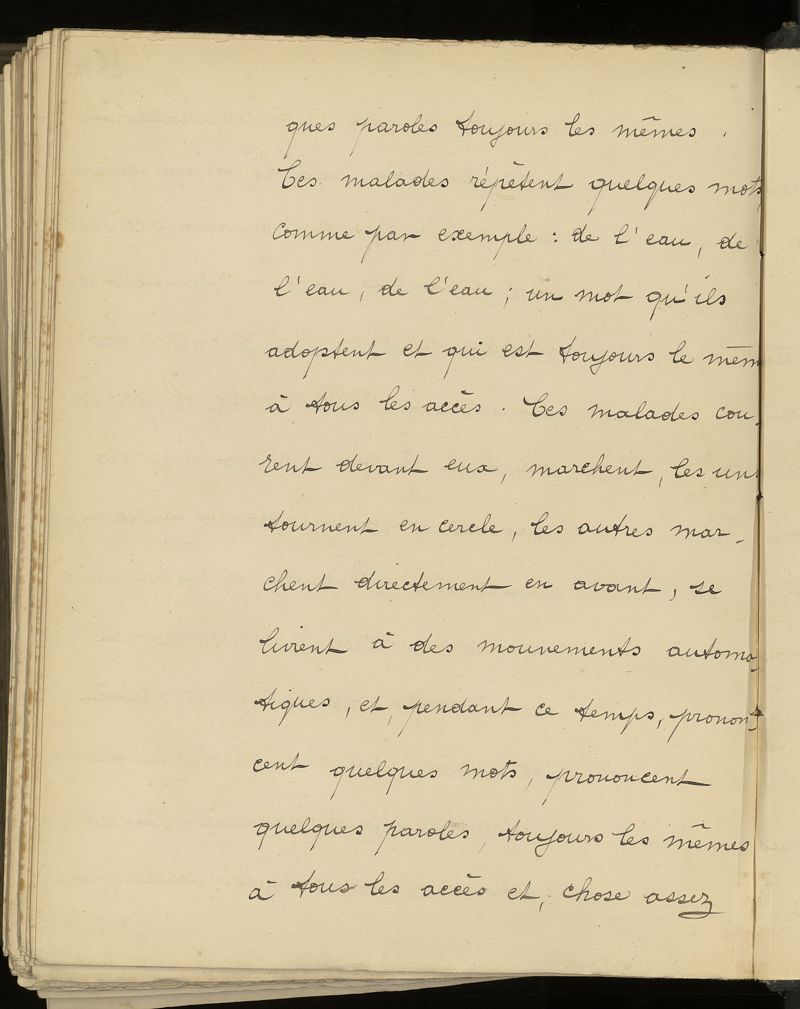 ques paroles toujours les mêmes.
Ces malades répètent quelques mots,
comme par exemple : de l'eau, de
l'eau, de l'eau ; un mot qu'ils
adoptent et qui est toujours le mêm
à tous les accès. Ces malades cou-
rent devant eux, marchent, les uns
tournent en cercle, les autres mar-
chent directement en avant, se
livrent à des mouvements automa-
tiques, et, pendant ce temps, pronon-
cent quelques mots, prononcent
quelques paroles, toujours les mêmes
à tous les accès et, chose assez